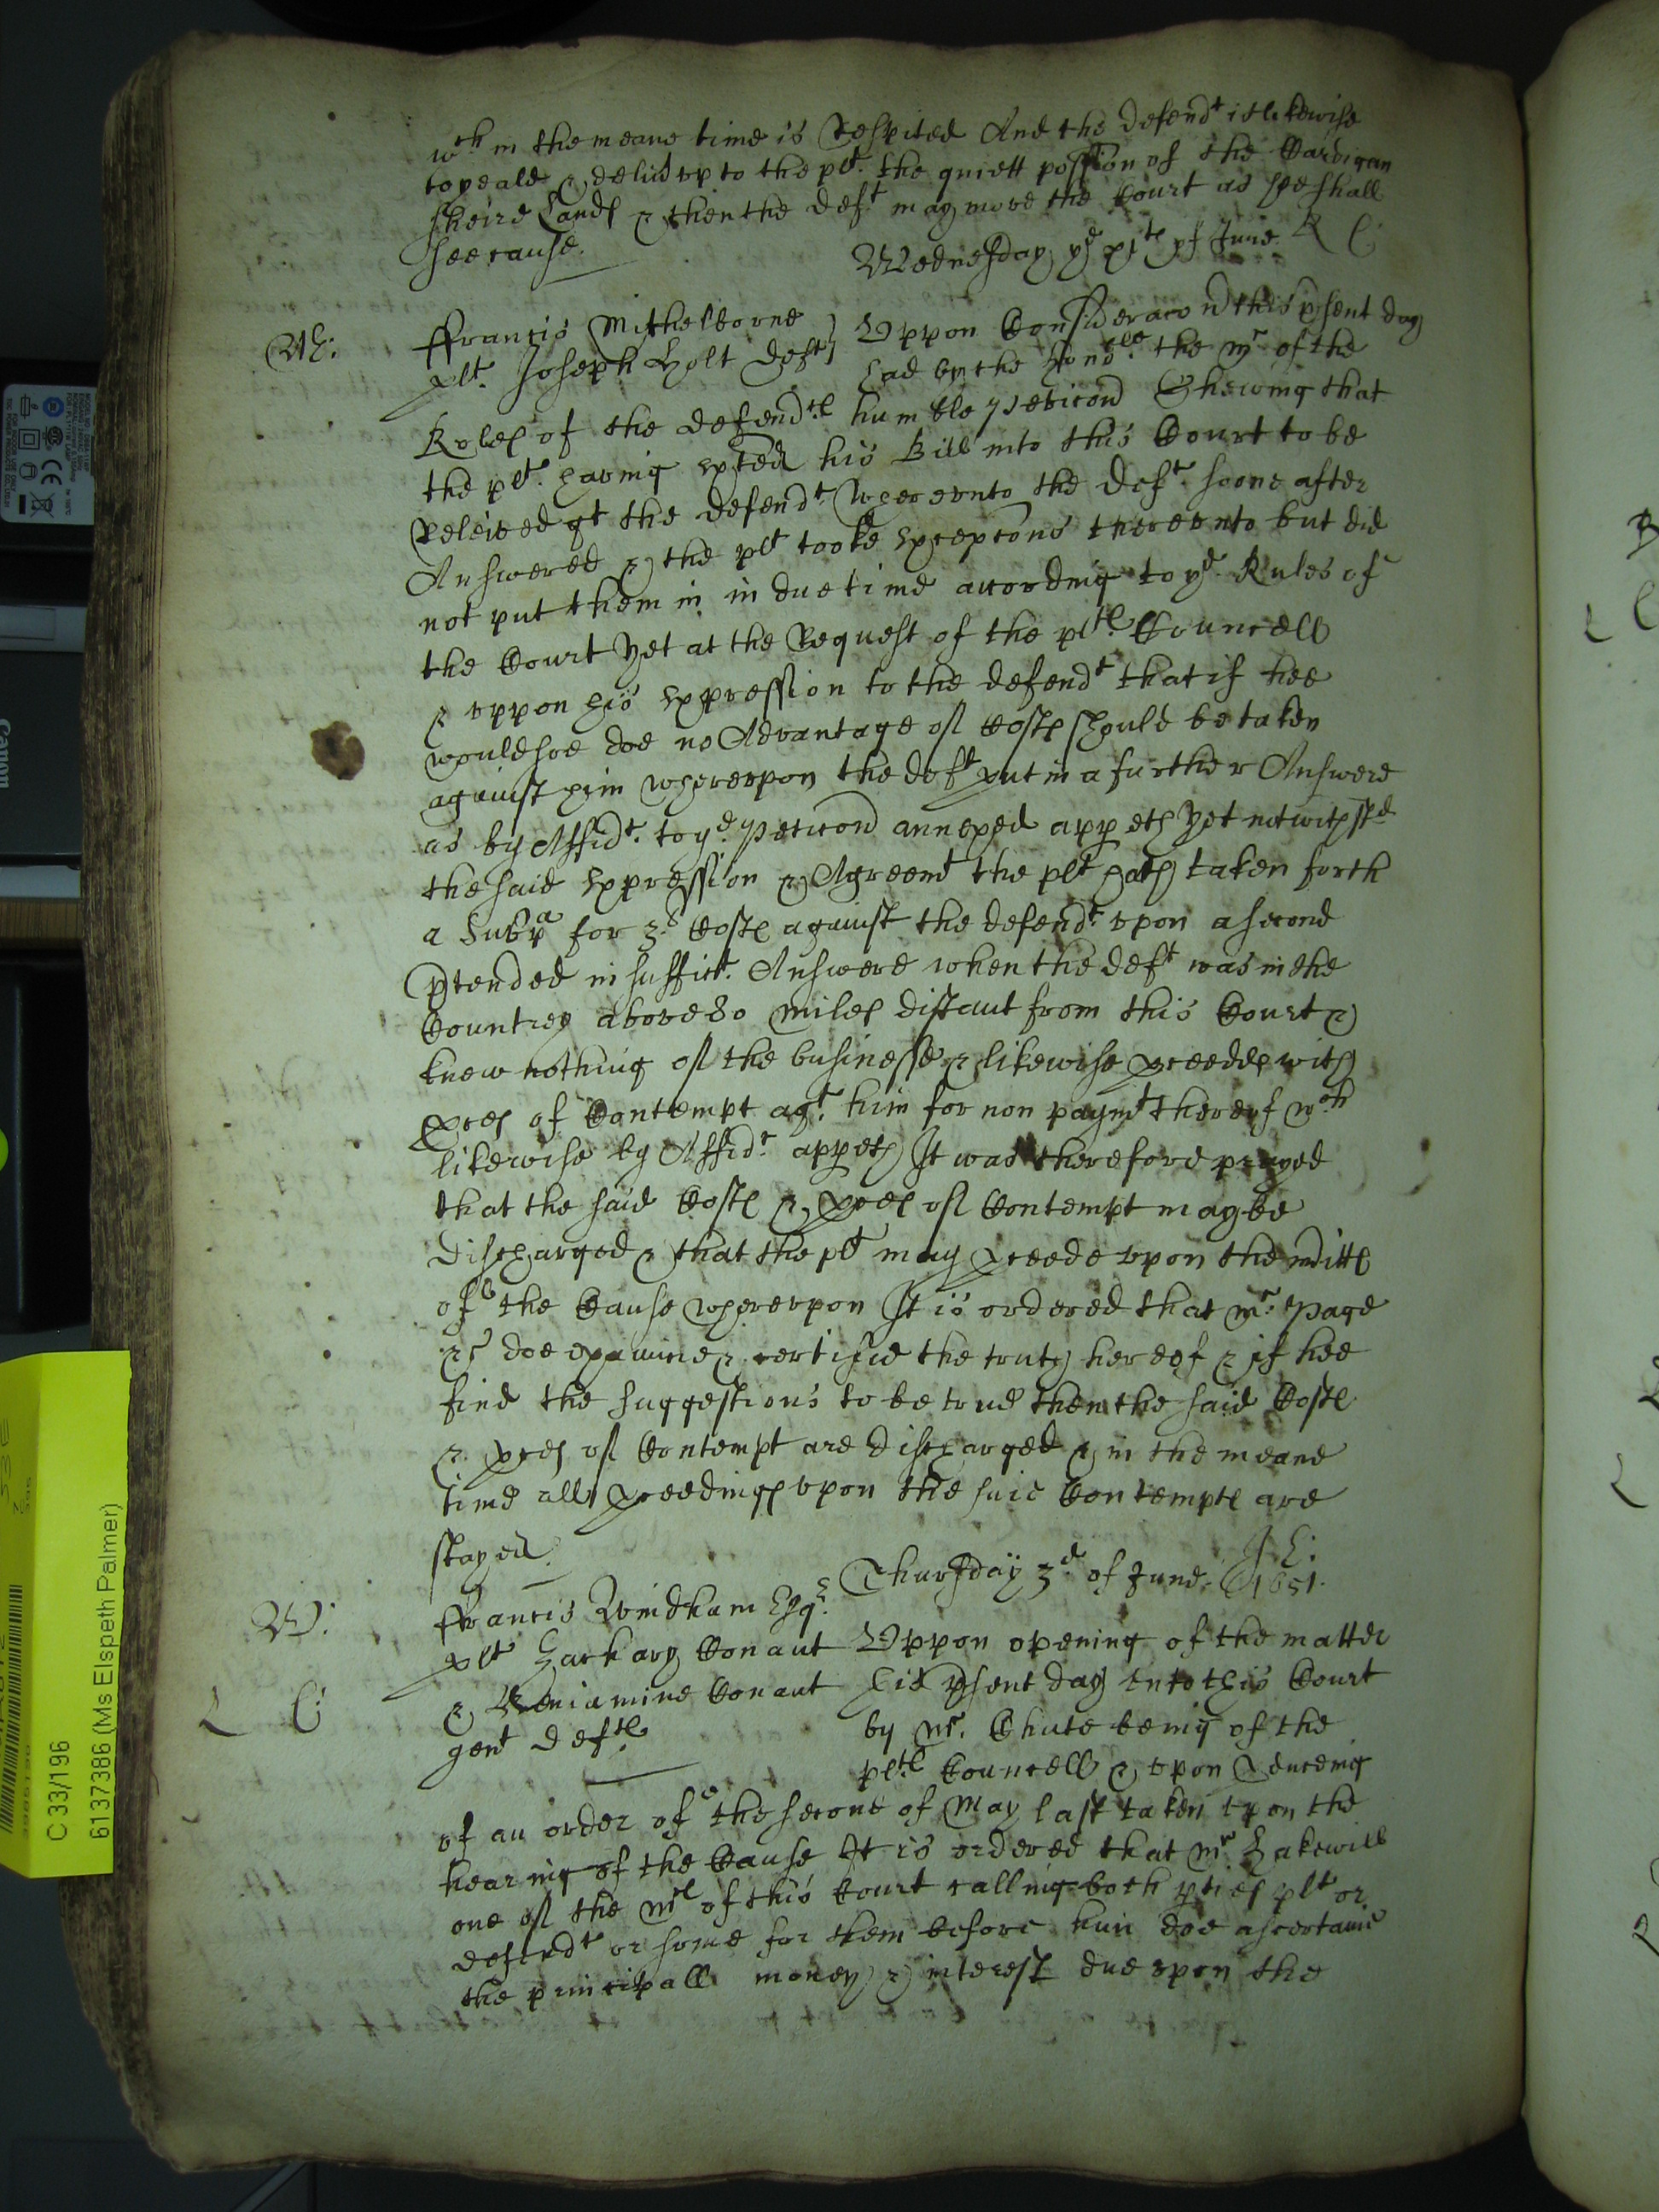 wch in the meane time is Respited And the defendt is likewise
to yeald & deliũ vp to the plt. the quiett possion of the Cardigan
sheire Lands & then the deft may move the Court as shee shall
see cause.
Wednesday ye xjth of June R C
M:
ffrancis Mithelborne
plt. Joseph Holt deft
Vppon Consideracon this psent day
had by the honoble. the Mr. of the
Roles of the defendts humble peticon Shewing that
the plt. having exħted his Bill into this Court to be
Releived agt the defendt. wherevnto the deft. soone after
Answered & the plt tooke excepcons therevnto but did
not put them in in due time according to ye. Rules of
the Court Yet at the Request of the plts Councell
& vppon his expression to the defendt that if hee
would soe doe no Advantage of Costs should be taken
against him wherevpon the deft put in a further Answere
as by Affidt. to ye. peticon annexed appeth Yet notwithstd
the said expression & Agreemt the plt hath taken forth
a Subpa for 3li Costs against the defendt. vpon a second
ptended insuffict. Answere when the deft was in the
Countrey above 80 miles distant from this Court &
knew nothing of the businesse & likewise pceedes with
pces of Contempt agt. him for non paymt thereof wch
likewise by Affidt. appeth It was therefore prayed
that the said Costs & pces of Contempt may be
discharged & that the plt may pceede vpon the meritts
of the Cause wherevpon It is ordered that mr. Page
&c doe examine & certifie the truth hereof & if hee
find the suggestions to be true then the said Costs
& pces of Contempt are discharged & in the meane
time all pceedings vpon the said Contempts are
stayed.
Thursday 3d. of June. 1651.
W:
ffrancis Windham Esqr.
plt Zackary Conant
& Beniamine Conant
gent defts
L C:
Vppon opening of the matter
this psent day vnto this Court
by Mr. Chute being of the
plts Councell & vpon Reading
of an order of the second of May last taken vpon the
hearing of the Cause It is ordered that Mr Lakewill
one of the Mrs of this Court calling both pties plt or
defendt or some for them before him doe ascertaine
the principall money & interest due vpon the
C 33/196
61377386 (Ms Elspeth Palmer)
Canon